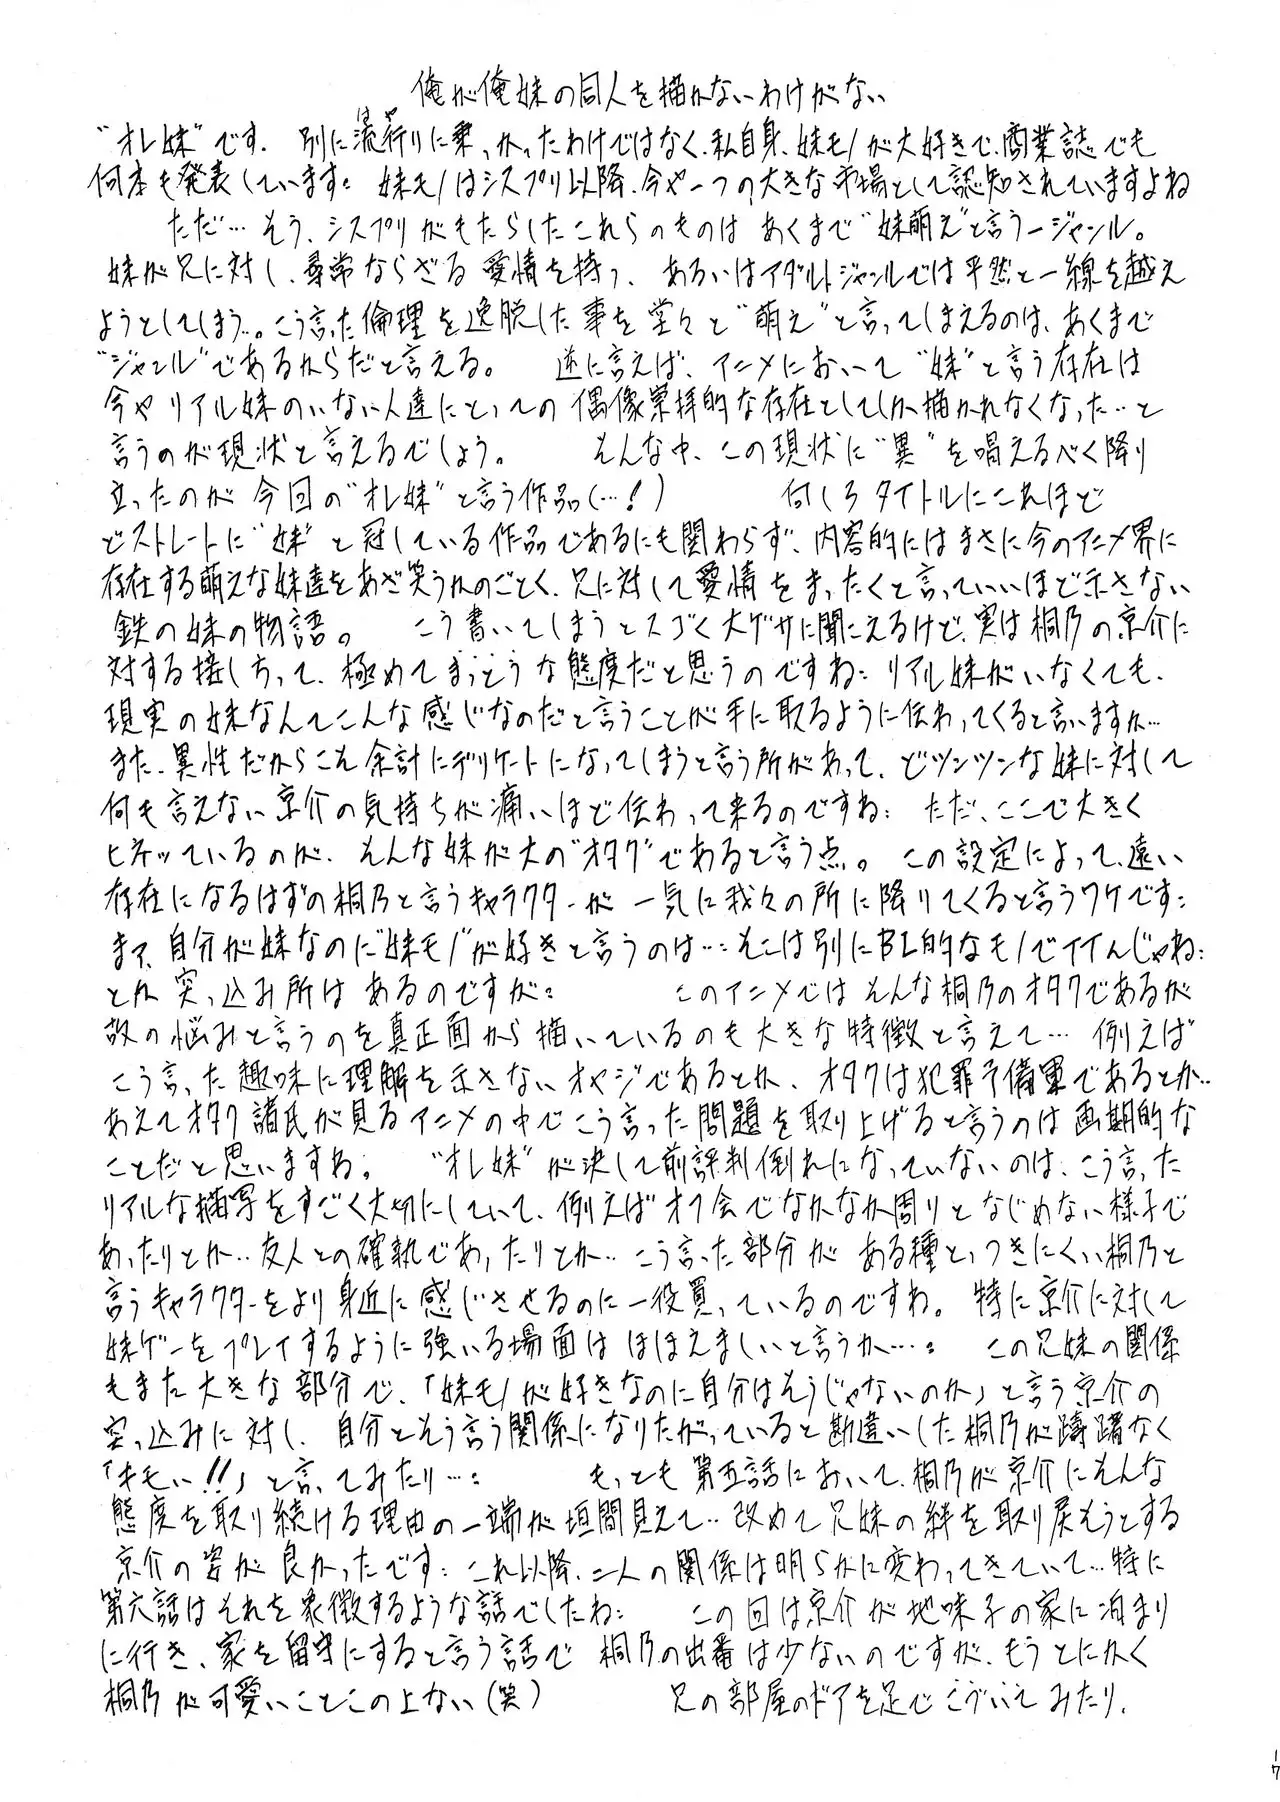 俺が俺妹の同人を描かないわけがない
"オレ妹"です. 別に流行りに乗っかったわけではなく、私自身、妹モノが大好きで、商業誌でも
はや
何本も発表しています: 妹モノはシスプリ以降、今や一つの大きな市場として認知されていますよね
ただ… そう、シスプリがもたらしたこれらのものは あくまで"妹萌え"と言う一ジャンル。
妹が兄に対し、尋常ならざる愛情を持つ、あるいはアダルトジャンルでは平然と一線を越え
ようとしてしまう…。こう言った倫理を逸脱した事を堂々と"萌え"と言ってしまえるのは、あくまで
"ジャンル"であるからだと言える。 逆に言えば、アニメにおいて"妹"と言う存在は
今やリアル妹のいない人達にとっての偶像崇拝的な存在としてしか描かれなくなった…と
言うのが現状と言えるでしょう。 そんな中、この現状に"異"を唱えるべく降り
立ったのが今回の"オレ妹"と言う作品(…!) 何しろタイトルにこれほど
どストレートに"妹"と冠している作品であるにも関わらず、内容的にはまさに今のアニメ界に
存在する萌えな妹達をあざ笑うかのごとく、兄に対して愛情をまったくと言っていいほど示さない
鉄の妹の物語。 こう書いてしまうとスゴく大ゲサに聞こえるけど、実は桐乃の京介に
対する接し方って、極めてまっとうな態度だと思うのですね: リアル妹がいなくても、
現実の妹なんてこんな感じなのだと言うことが手に取るように伝わってくると言いますか…
また、異性だからこそ余計にデリケートになってしまうと言う所があって、どツンツンな妹に対して
何も言えない京介の気持ちが痛いほど伝わって来るのですね: ただ、ここで大きく
ヒネッているのが、そんな妹が大の"オタク"であると言う点。この設定によって、遠い
存在になるはずの桐乃と言うキャラクターが一気に我々の所に降りてくると言うワケです:
まア、自分が妹なのに"妹モノ"が好きと言うのは…: そこは別にBL的なモノでイイんじゃね:
とか突っ込み所はあるのですが: このアニメではそんな桐乃のオタクであるが
故の悩みと言うのを真正面から描いているのも大きな特徴と言えて… 例えば
こう言った趣味に理解を示さないオヤジであるとか、オタクは犯罪予備軍であるとか…
あえてオタク諸氏が見るアニメの中でこう言った問題を取り上げると言うのは画期的な
ことだと思いますね。 "オレ妹"が決して前評判倒れになっていないのは、こう言った
リアルな描写をすごく大切にしていて、例えばオフ会でなかなか周りとなじめない様子で
あったりとか‥友人との確執であったりとか‥こう言った部分がある種とっつきにくい桐乃と
言うキャラクターをより身近に感じさせるのに一役買っているのですね。特に京介に対して
妹ゲーをプレイするように強いる場面はほほえましいと言うか…: この兄妹の関係
もまた大きな部分で、「妹モノが好きなのに自分はそうじゃないのか」と言う京介の
突っ込みに対し、自分とそう言う関係になりたがっていると勘違いした桐乃が躊躇なく
「キモい!!」と言ってみたり…: もっとも第五話において、桐乃が京介にそんな
態度を取り続ける理由の一端が垣間見えて‥改めて兄妹の絆を取り戻そうとする
京介の姿が良かったです: これ以降、二人の関係は明らかに変わってきていて…特に
第六話はそれを象徴するような話でしたね: この回は京介が地味子の家に泊まり
に行き、家を留守にすると言う話で桐乃の出番は少ないのですが、もうとにかく
桐乃が可愛いことこの上ない(笑) 兄の部屋のドアを足でこづいてみたり、
17